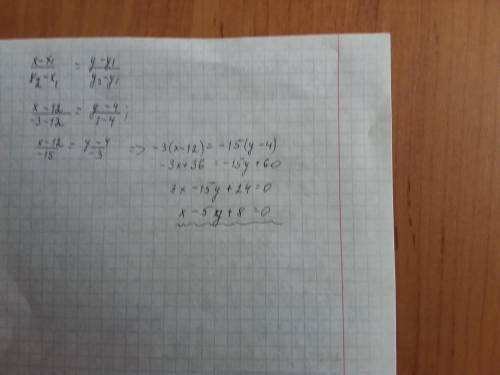 (x-x₁)/(x₂-x₁) = (y-y₁)/(y₂-y₁)
(x-12)/(-3-12) = (y-4)/(1-4);
(x-12)/(-15) = (y-4)/(-3) => -3(x-12) = -15(y-4)
-3x+36 = -15y+60
3x-15y+24=0
x-5y+8=0